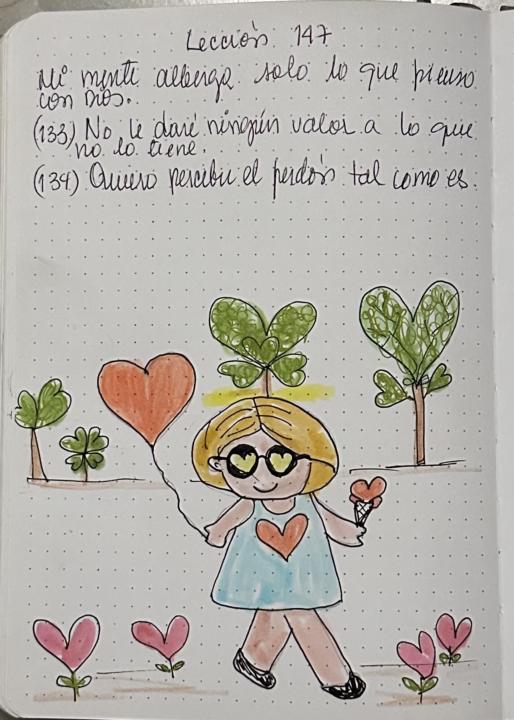 Lección 147
Mi mente alberga solo lo que pienso
con Dios.
(133) No le daré ningún valor a lo que
no lo tiene.
(134) Quiero percibir el perdón tal como es.